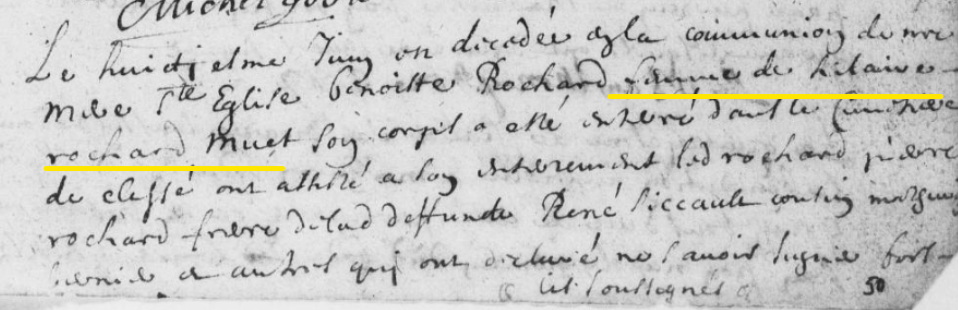 Michel
Le huictiesme Juin est décédée en la communion de nre
mère Ste Eglise benoitte Rochard femme de hilaire
rochard muet son corps a esté enterré dans le cimetiere
de clessé ont assisté a son enterement led rochard pierre
rochard frère de lad deffunte René siccault cousin
et autres qui ont déclaré ne savoir signer fors
les soussignes
50